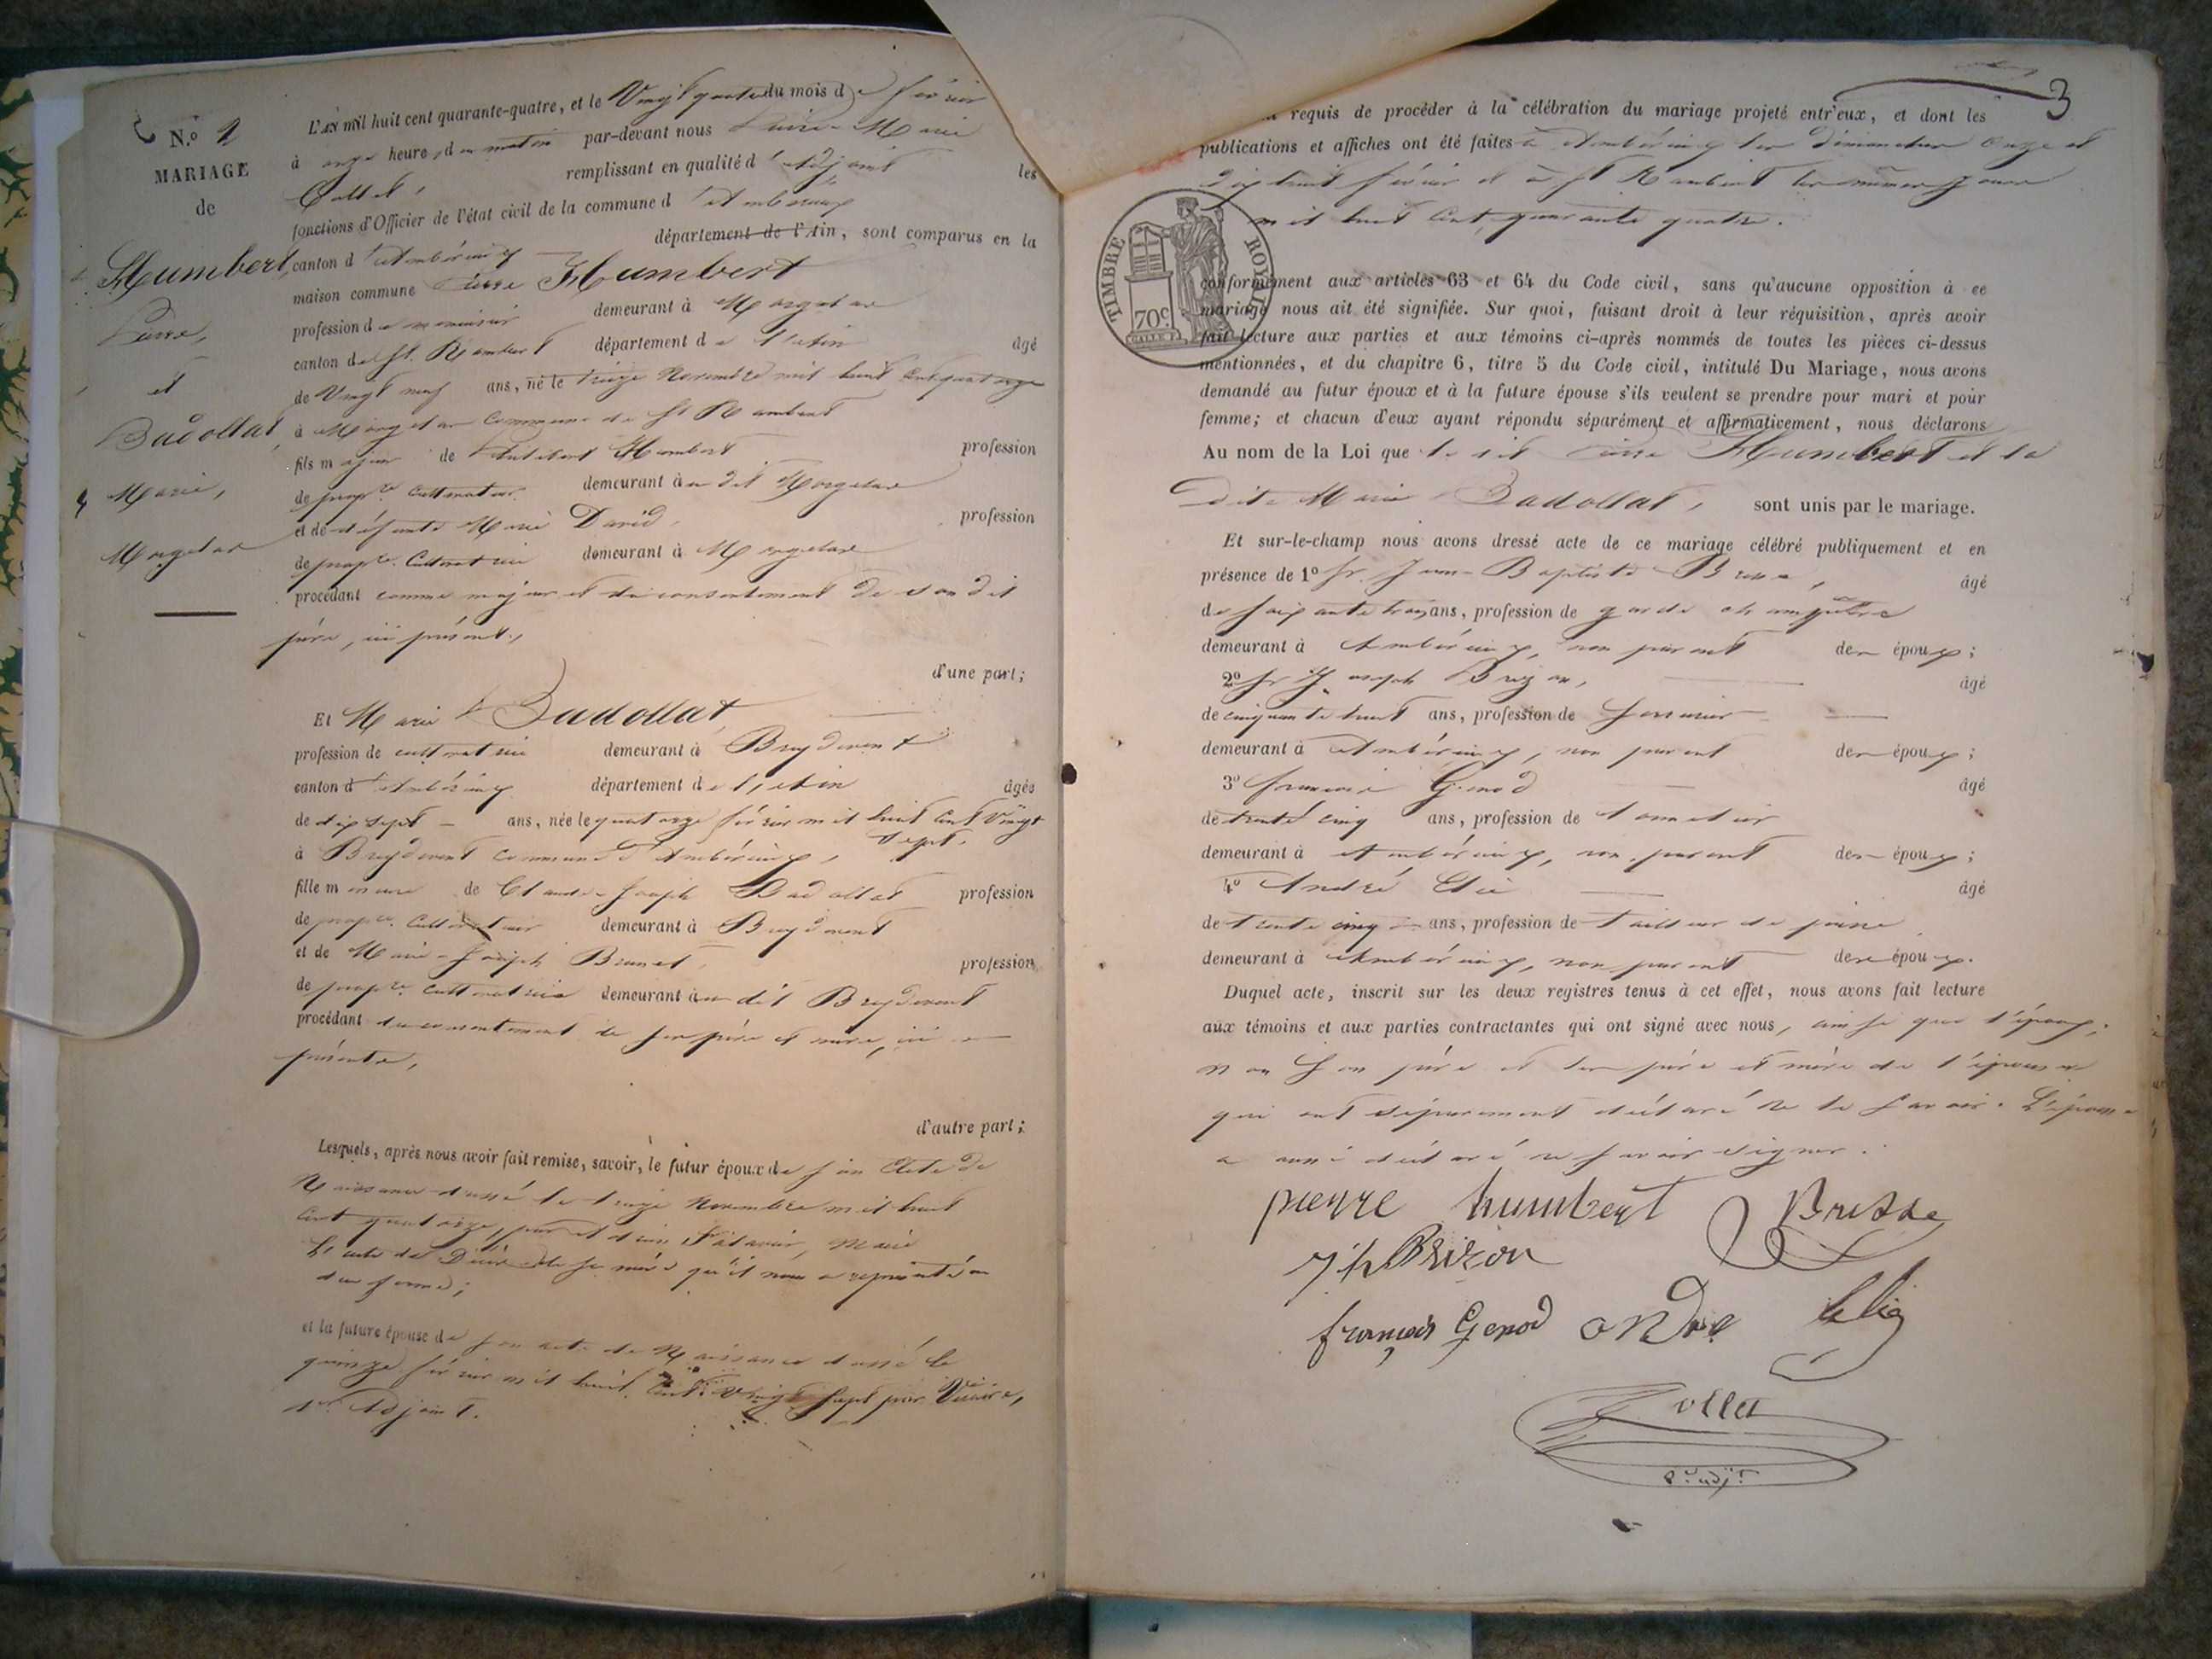 N.º 2
MARIAGE
de
Humbert,
Pierre,
et
Badollat,
Marie,
Morgelas
L'AN mil huit cent quarante-quatre, et le Vingt quatre du mois de février
à onze heures du matin par-devant nous Pierre-Marie
Collet, remplissant en qualité d'adjoint les
fonctions d'Officier de l'état civil de la commune d'Ambérieux
canton d'Ambérieux département de l'Ain, sont comparus en la
maison commune Pierre Humbert
profession de menuisier demeurant à Morgelas
canton de St. Rambert département de l'Ain âgé
de Vingt neuf ans, né le treize Novembre mil huit cent quatorze
à Morgelas commune de St Rambert
fils majeur de Anthelme Humbert profession
de prop.re Cultivateur demeurant au dit Morgelas
et de défunte Marie David, profession
de prop.re Cultivatrice demeurant à Morgelas
procédant comme majeur et du consentement de son dit
père, ici présent,
d'une part;
Et Marie Badollat
profession de cultivatrice demeurant à Breydevent
canton d'Ambérieux département de l'Ain âgée
de dix sept ans, née le quatorze février mil huit cent Vingt
sept,
à Breydevent commune d'Ambérieux,
fille mineure de Claude-Joseph Badollat profession
de prop.re Cultivateur demeurant à Breydevent
et de Marie-Joseph Brunet, profession
de prop.re Cultivatrice demeurant au dit Breydevent
procédant du consentement de ses père et mère, ici
présents,
d'autre part;
Lesquels, après nous avoir fait remise, savoir, le futur époux de son Acte de
Naissance dressé le treize Novembre mil huit
cent quatorze, par Maire
L'acte de Décès de sa mère qu'il nous a représenté en
due forme;
et la future épouse de son acte de Naissance dressé le
quinze février mil huit cent vingt sept par
1er Adjoint.
3
requis de procéder à la célébration du mariage projeté entr'eux, et dont les
publications et affiches ont été faites à Ambérieux les dimanches onze et
dix huit février et à St Rambert les mêmes jours
mil huit cent quarante quatre.
TIMBRE ROYAL
70c.
conformément aux articles 63 et 64 du Code civil, sans qu'aucune opposition à ce
mariage nous ait été signifiée. Sur quoi, faisant droit à leur réquisition, après avoir
fait lecture aux parties et aux témoins ci-après nommés de toutes les pièces ci-dessus
mentionnées, et du chapitre 6, titre 5 du Code civil, intitulé Du Mariage, nous avons
demandé au futur époux et à la future épouse s'ils veulent se prendre pour mari et pour
femme; et chacun d'eux ayant répondu séparément et affirmativement, nous déclarons
Au nom de la Loi que le dit Pierre Humbert et la
Dite Marie Badollat, sont unis par le mariage.
Et sur-le-champ nous avons dressé acte de ce mariage célébré publiquement et en
présence de 1º Sr. Jean-Baptiste Bresse, âgé
de soixante trois ans, profession de garde champêtre
demeurant à Ambérieux, non parent des époux;
2º Sr Joseph Brizon, âgé
de cinquante huit ans, profession de serrurier
demeurant à Ambérieux, non parent des époux;
3º François Genod âgé
de trente cinq ans, profession de tonnelier
demeurant à Ambérieux, non parent des époux;
4º André Elie âgé
de trente cinq ans, profession de tailleur de pierre
demeurant à Ambérieux, non parent des époux.
Duquel acte, inscrit sur les deux registres tenus à cet effet, nous avons fait lecture
aux témoins et aux parties contractantes qui ont signé avec nous, ainsi que l'époux;
non son père et les père et mère de l'épouse
qui ont séparément déclaré ne le savoir. L'épouse
a aussi déclaré ne savoir signer.
pierre humbert Bresse
Jh Brizon
françois Genod andré Elie
Collet